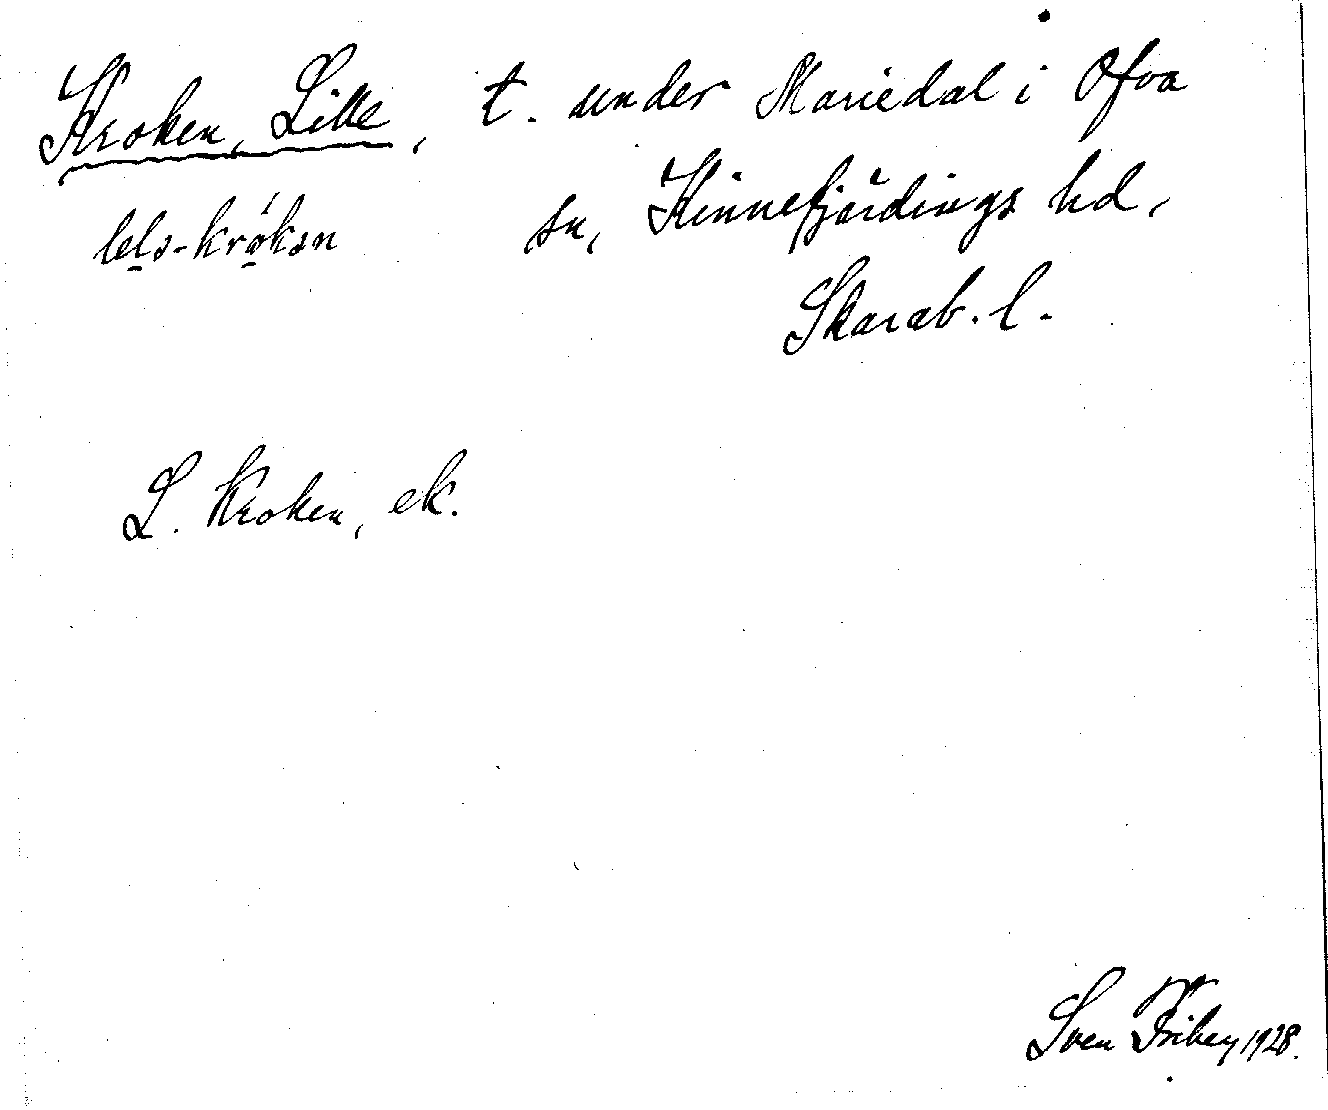 Kroken, Lille, t. under Mariedal i Ofva
lelə-krokən sn, Kinnefjärdings hd,
Skarab. l.
L. Kroken, ek.
Sven Fribey 1928.